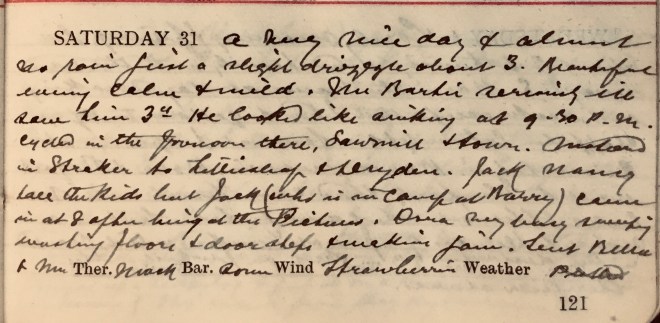 SATURDAY 31 a very nice day & almost
no rain just a slight drizzle about 3. Beautiful
evening calm & mild. Mr Barkir seriously ill
saw him 3rd He looked like sinking at 9-30 P.M.
cycled in the forenoon there, Sawmill & town. Motored
in Straker to & Dryden. Jack Nancy
all the Kids but Jack (who is in Camp at Barry) came
in at 8 after being at the Pictures. Ona very busy sweeping
washing floors & door steps & making jam. Sent Bella
& Mrs Ther. Mack Bar. some Wind Strawberries Weather
121